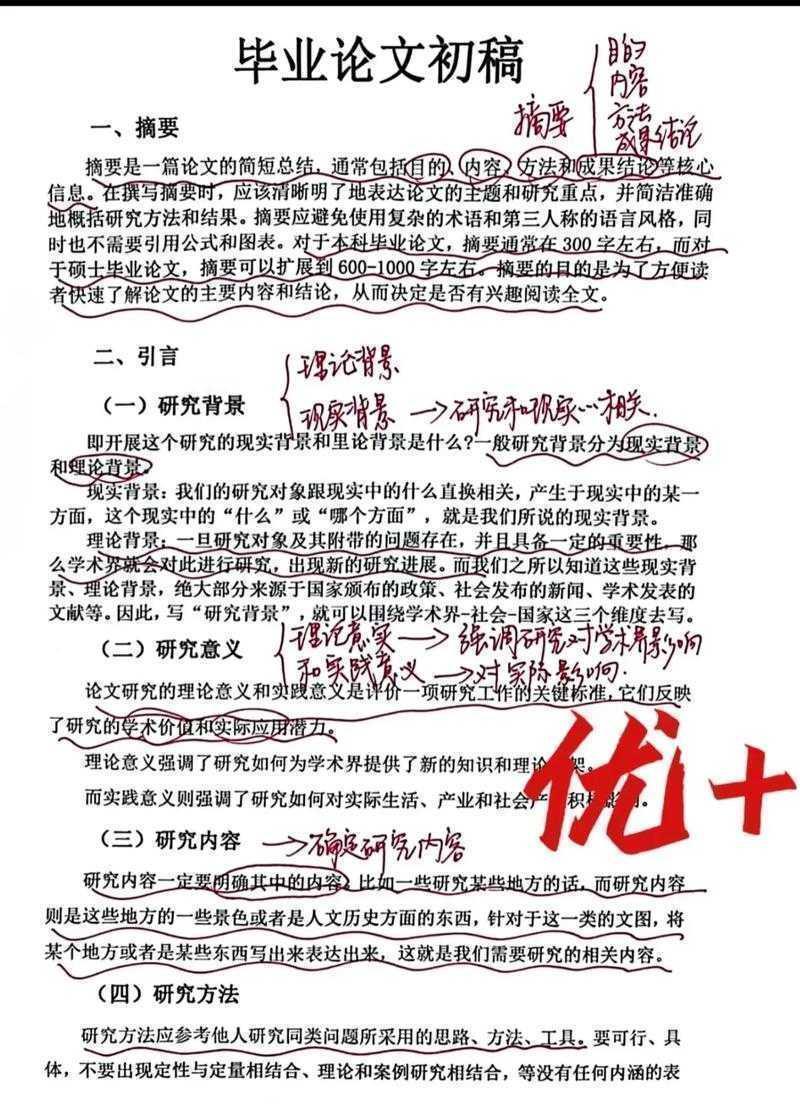 毕业论文初稿
目的
内容
方法
成果结论
摘要
一、摘要
摘要是一篇论文的简短总结，通常包括目的、内容、方法和成果结论等核心
信息。在撰写摘要时，应该清晰明了地表达论文的主题和研究重点，并简洁准确
地概括研究方法和结果。摘要应避免使用复杂的术语和第三人称的语言风格，同
时也不需要引用公式和图表。对于本科毕业论文，摘要通常在 300 字左右，而对
于硕士毕业论文，摘要可以扩展到 600-1000 字左右。摘要的目的是为了方便读
者快速了解论文的主要内容和结论，从而决定是否有兴趣阅读全文。
二、引言
理论背景
（一）研究背景
现实背景 →研究和现实…相关.
即开展这个研究的现实背景和里论背景是什么?一般研究背景分为现实背景
和理论背景。
现实背景：我们的研究对象跟现实中的什么直换相关，产生于现实中的某一
方面，这个现实中的“什么”或“哪个方面”，就是我们所说的现实背景。
理论背景：一旦研究对象及其附带的问题存在，并且具备一定的重要性，那
么学术界就会对此进行研究，出现新的研究进展。而我们之所以知道这些现实背
景、理论背景，绝大部分来源于国家颁布的政策、社会发布的新闻、学术发表的
文献等。因此，写“研究背景”，就可以围绕学术界-社会-国家这三个维度去写。
（二）研究意义
理论意实 → 强调研究对学术界影响
和实践意义 →对实际影响.
论文研究的理论意义和实践意义是评价一项研究工作的关键标准，它们反映
了研究的学术价值和实际应用潜力。
理论意义强调了研究如何为学术界提供了新的知识和理论 架。
而实践意义则强调了研究如何对实际生活、产业和社会产 积极影响。
优+
（三）研究内容 →确定研究内容
研究内容一定要明确其中的内容，比如一些研究某些地方的话，而研究内容
则是这些地方的一些景色或者是人文历史方面的东西，针对于这一类的文图，将
某个地方或者是某些东西写出来表达出来，这就是我们需要研究的相关内容。
（四）研究方法
研究方法应参考他人研究同类问题所采用的思路、方法、工具。要可行、具
体，不要出现定性与定量相结合、理论和案例研究相结合，等没有任何内涵的表